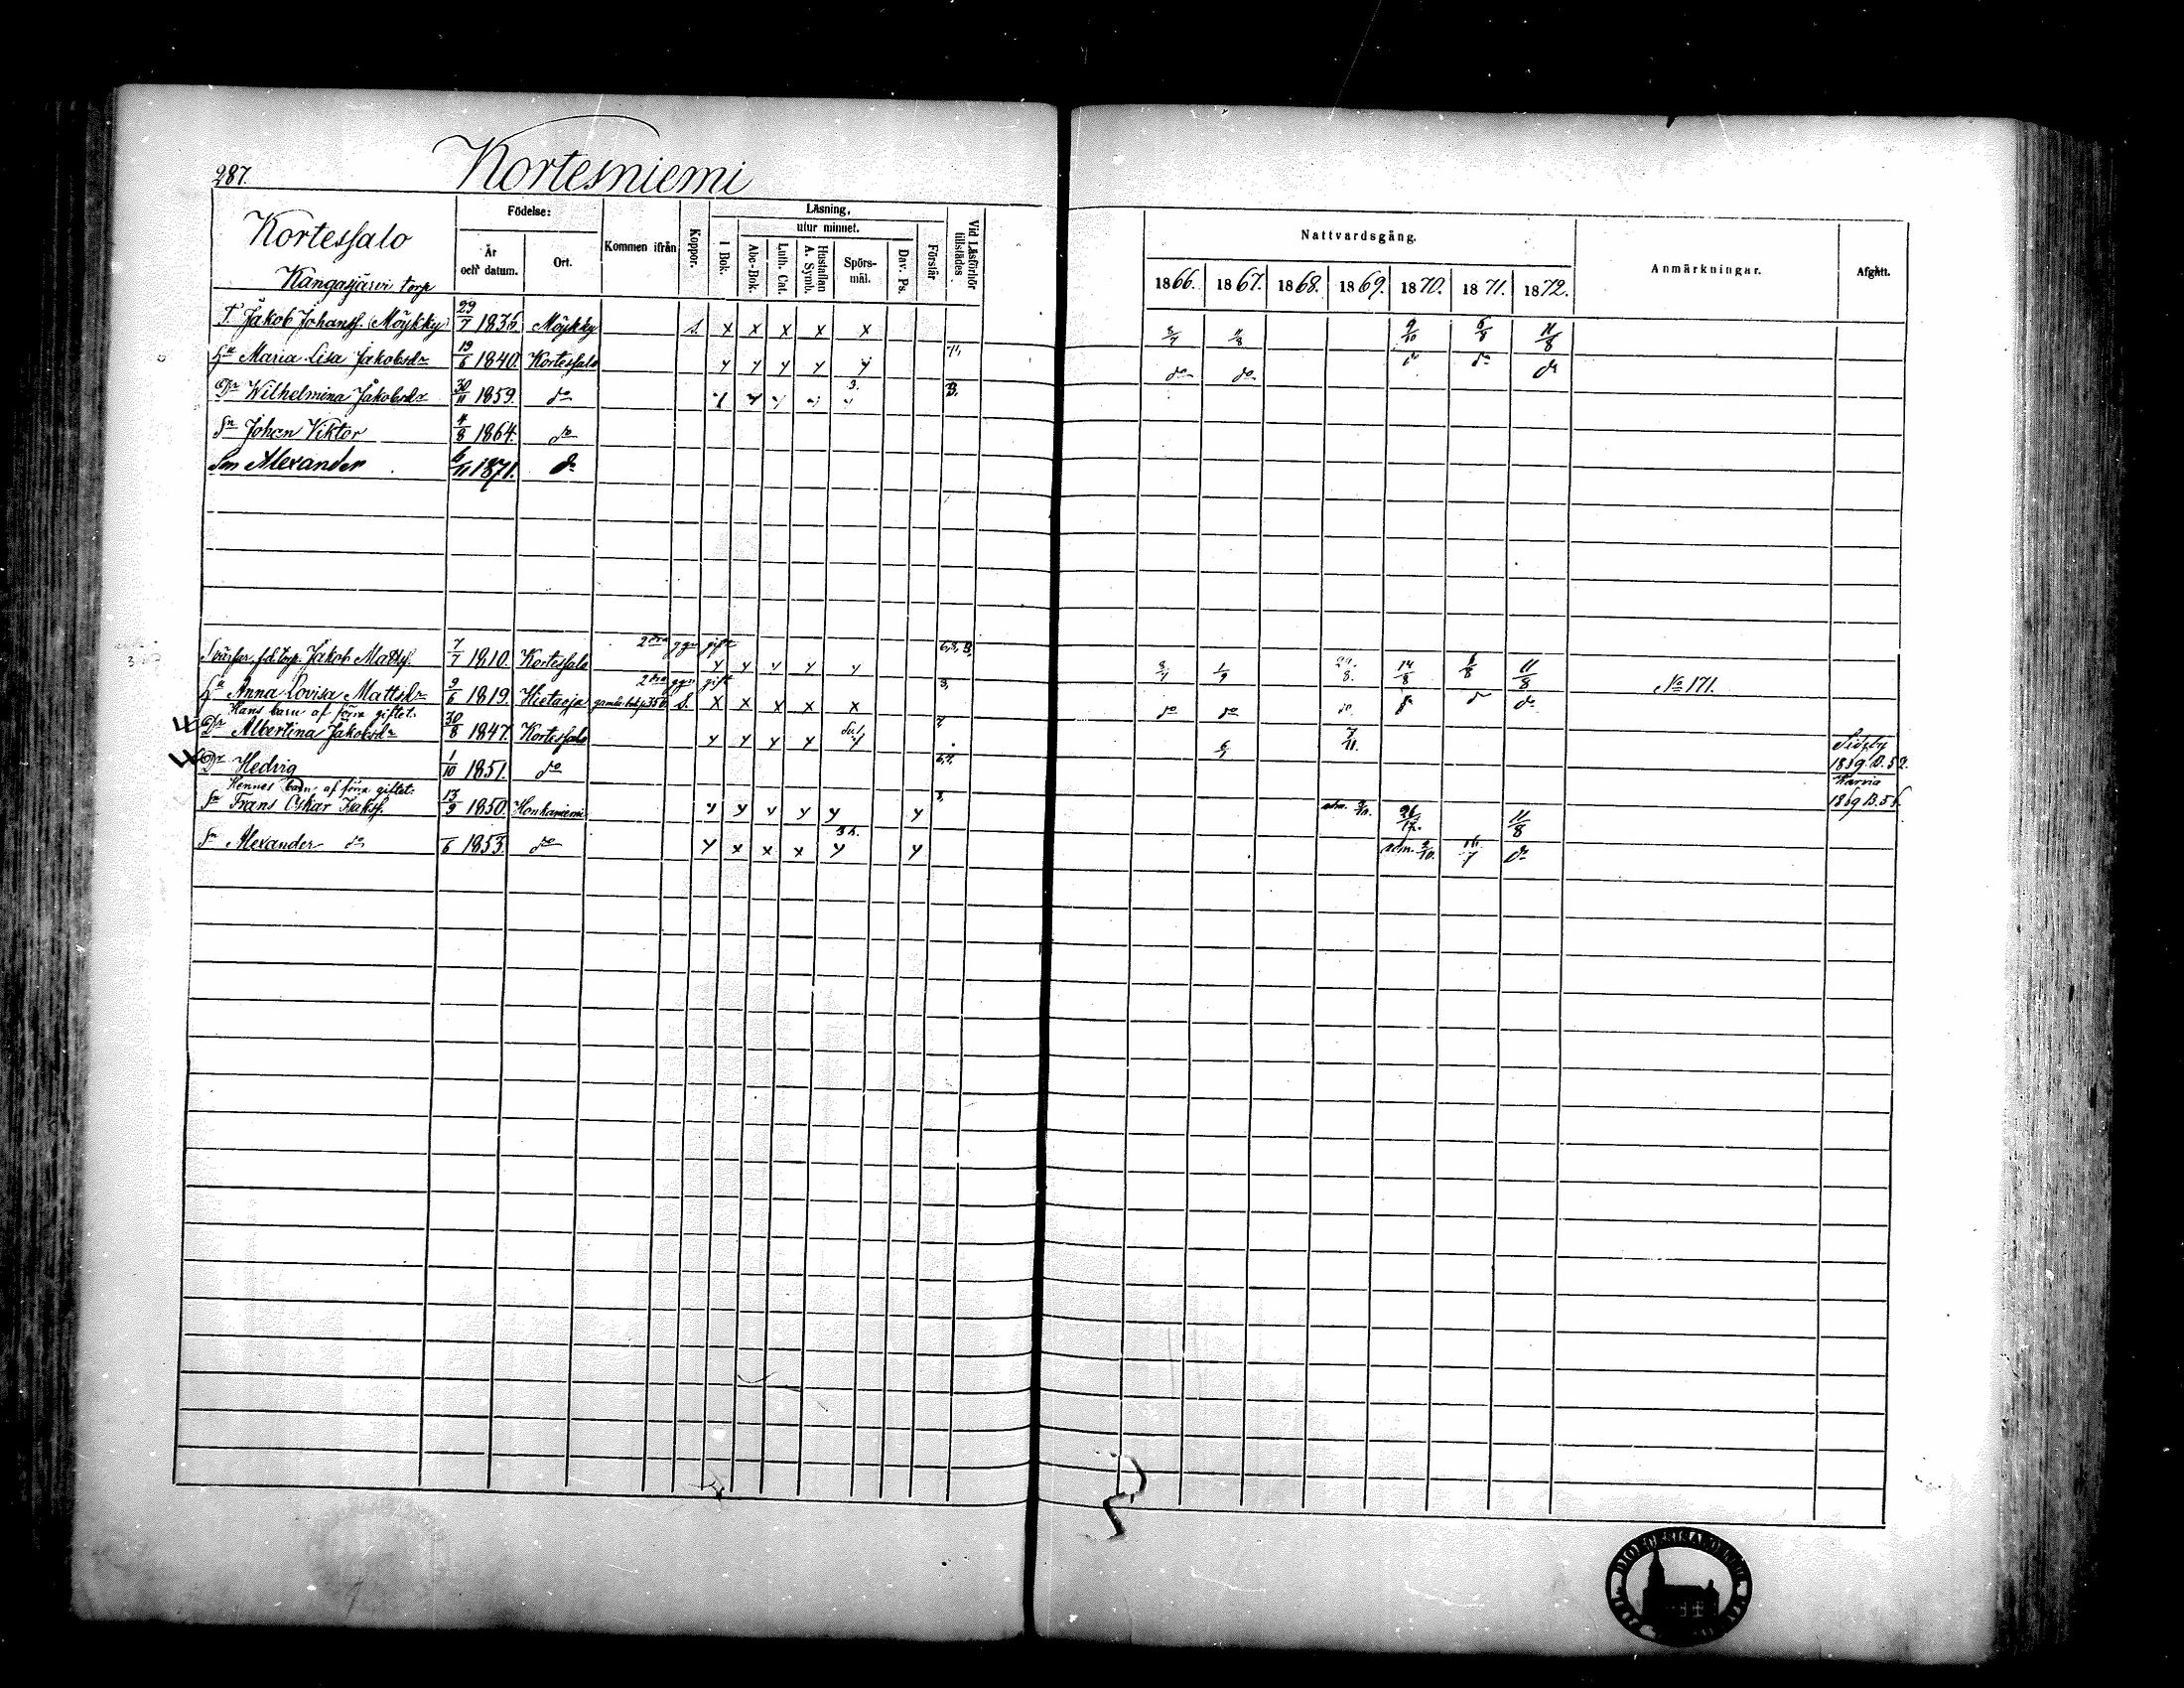 287.
Kortesniemi
Kortessalo
Kangasjärvi torp
Födelse:
År och datum.
Ort.
Kommen ifrån
Koppor.
Läsning,
utur minnet.
I Bok.
Abc-Bok.
Luth. Cat.
Hustaflan A. Symb.
Spörs-mål.
Dav. Ps.
Förstår
Vid Läsförhör tillstädes
Nattvardsgång.
1866. 1867. 1868. 1869. 1870. 1871. 1872.
Anmärkningar.
Afgått.
T. Jakob Johanss. (Möykky) 29/7 1836 Möykky s. x x x x x 9/10 6/8 11/8
Hu Maria Lisa Jakobsdr 19/6 1840. Kortessalo y y y y y do do do do do
Dr Wilhelmina Jakobsdr 30/11 1859. do 3.
Sn Johan Viktor 4/8 1864. do
Son Alexander 6/11 1871. do
2dra ggn gift
Svärfar, f.d. torp. Jakob Matss. 7/7 1810. Kortessalo y y y y y 14/8 6/8 11/8 No 171.
2dra ggn gift
Hu Anna Lovisa Mattsdr 9/6 1819. Hietaoja gamla bok p 356 S. x x x x x do do do do do do
Hans barn af förra giftet.
Dr Albertina Jakobsdr 30/8 1847. Kortessalo y y y y 7/11. 1869. B. 52.
Dr Hedvig 1/10 1851. do Karvia 1869 B. 56.
Hennes barn af förra giftet.
Sn Frans Oskar Isakss. 13/9 1850. Honkaniemi y y y y y y adm. 11/8
Sn Alexander do /6 1853. do y x x x y y adm. do